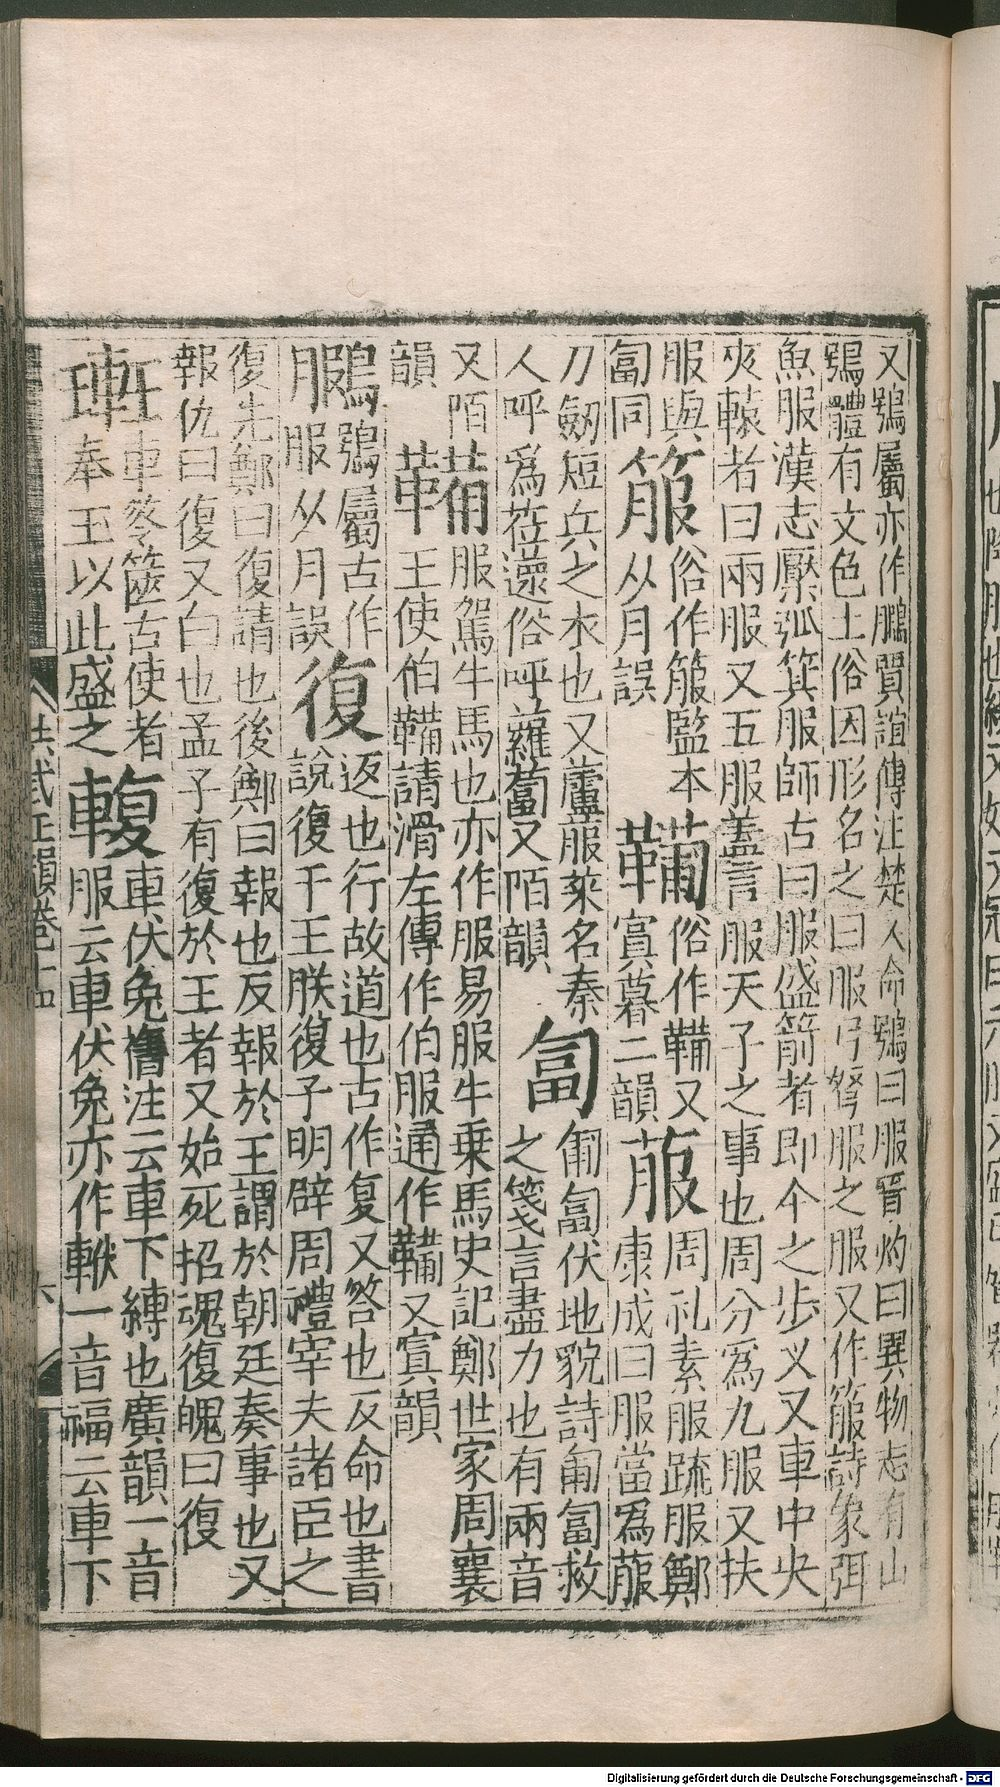 又鴞屬亦作鵩賈誼傳注楚人命鴞曰服晉灼曰異物志有山
鴞體有文色土俗因形名之曰服弓弩服之服又作箙詩象弭
魚服漢志檿弧箕服師古曰服盛箭者即今之步乂又車中央
夾轅者曰兩服又五服蓋言服天子之事也周分爲九服又扶
服與箙俗作箙監本鞴俗作鞴又菔周礼素服䟽服鄭
匐同 从月誤 賔暮二韻 康成曰服當爲菔
刀劒短兵之衣也又蘆服萊名秦匐匍匐伏地貌詩匍匐救
人呼爲菈䔣俗呼蘿蔔又陌韻 之箋言盡力也有兩音
又陌犕服駕牛馬也亦作服易服牛乗馬史記鄭世家周襄
韻 王使伯犕請滑左傳作伯服通作鞴又寘韻
鵩鴞屬古作復返也行故道也古作复又答也反命也書
服从月誤 說復于王朕復子明辟周禮宰夫諸臣之
復先鄭曰復請也後鄭曰報也反報於王謂於朝廷奏事也又
報仇曰復又白也孟子有復於王者又始死招魂復魄曰復
䡋車笭篋古使者輹車伏兔舊注云車下縳也廣韻一音
奉玉以此盛之 服云車伏兔亦作䡍一音福云車下
洪武正韻卷十四
六
Digitalisierung gefördert durch die Deutsche Forschungsgemeinschaft - DFG